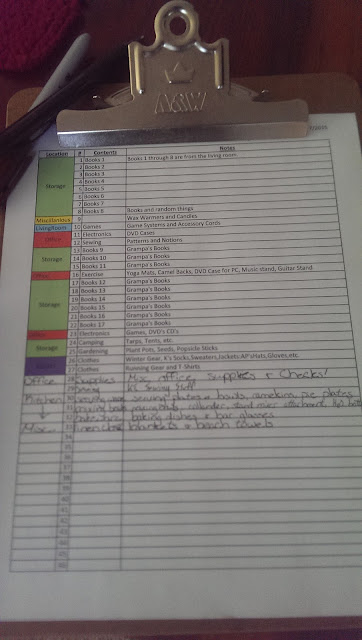 /2015
Location # Contents Notes
1 Books 1 Books 1 through 8 are from the living room
2 Books 2
3 Books 3
4 Books 4
Storage 5 Books 5
6 Books 6
7 Books 7
8 Books 8 Books and random things
Miscellaneous 9 Wax Warmers and Candles
LivingRoom 10 Games Game Systems and Accessory Cords
Office 11 Electronics DVD Cases
12 Sewing Patterns and Notions
13 Books 9 Grampa's Books
Storage 14 Books 10 Grampa's Books
15 Books 11 Grampa's Books
Office 16 Exercise Yoga Mats, Camel Backs, DVD Case for PC, Music stand, Guitar Stand
17 Books 12 Grampa's Books
18 Books 13 Grampa's Books
Storage 19 Books 14 Grampa's Books
20 Books 15 Grampa's Books
21 Books 16 Grampa's Books
22 Books 17 Grampa's Books
23 Electronics Games, DVD's CD's
Storage 24 Camping Tarps, Tents, etc.
25 Gardening Plant Pots, Seeds, Popsicle Sticks
26 Clothes Winter Gear, K's Socks,Sweaters,Jackets,AP's Hats,Gloves,etc.
27 Clothes Running Gear and T-Shirts
Office 28 Supplies Misc. Office Supplies + Checks!
29 Sewing KC Sewing Stuff
Kitchen 30 serving plates + bowls, ramekins, pie plates
31 mixing bowls, colander, stand mixer attachment
32 baking dishes + bar glasses
Misc. 33 blankets + beach towels
34
35
36
37
38
39
40
41
42
43
44
45
46